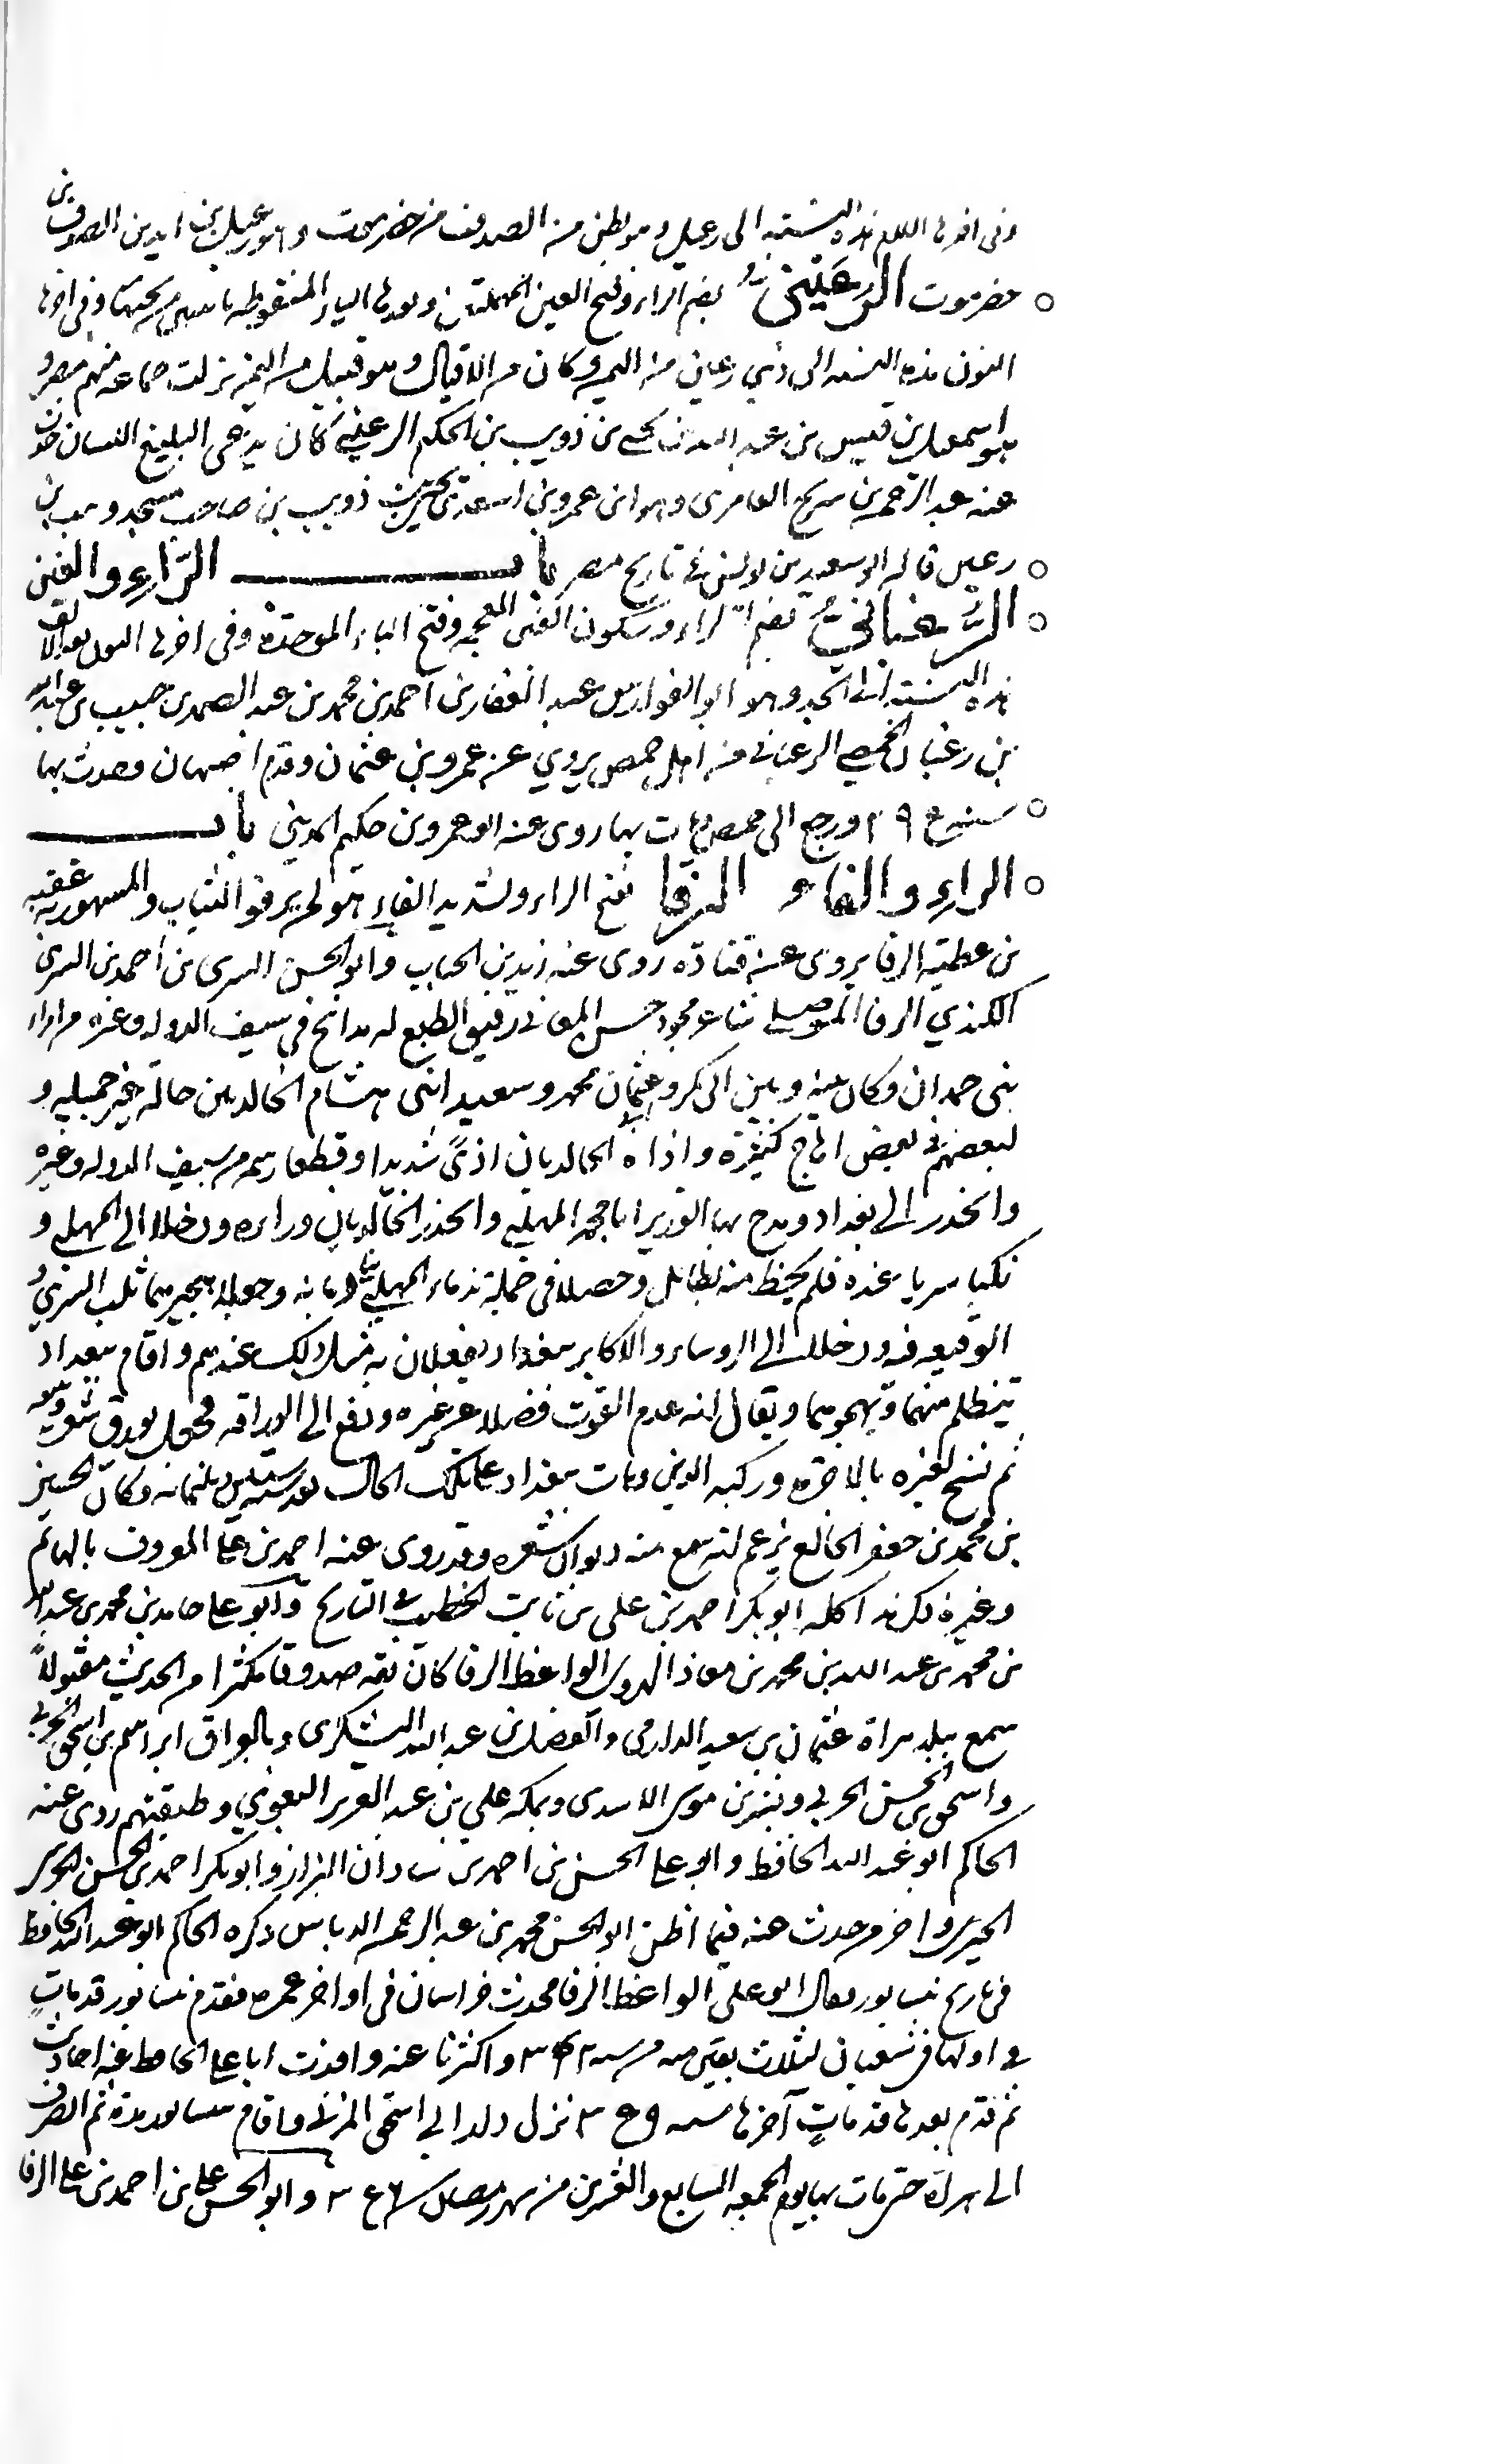 وفى اخرها اللام هذه النسبة الى رعيل وهو بطن من الصدف من حضرموت وهو رعيل بن ايد بن الصدف بن
حضرموت الرعينى بضم الراء وفتح العين المهملتين وبعدها الياء المنقوطة باثنتين من تحتها وفى اخرها
النون هذه النسبة الى ذي رعين من اليمن وكان من الاقيال وهو قبيل من اليمن نزلت جماعة منهم مصر و
هو اسمعيل بن قيس بن عبد الله بن يحيى بن ذويب بن الحكم الرعيني كان يدعى البليغ اللسان حدث
عنه عبد الرحمن بن سريج العامرى وهو ابن عمرو بن اسعد بن ذويب بن صاحب مسجد وهب بن
رعين قاله ابو سعيد بن يونس في تاريخ مصر باب الراء والغين
الرغبانى بضم الراء وسكون الغين المعجمة وفتح الباء الموحدة وفى اخرها النون بعد الالف
هذه النسبة الى الجد وهو ابو الفوارس عبد الغفار بن احمد بن محمد بن عبد الصمد بن حبيب بن عبد الله
بن رغبان الحمصي الرغبانى من اهل حمص يروي عن عمرو بن عثمان وقدم اصبهان وحدث بها
سنة ٢٩٤ ورجع الى حمص ومات بها روى عنه ابو عمرو بن حكيم المديني باب
الراء والفاء الرفا بفتح الراء وتشديد الفاء هو لمن يرفو الثياب والمشهور به عقبة
بن عطية الرفا يروى عن قتادة روى عنه زيد بن الحباب وابو الحسن السرى بن احمد بن السرى
الكندي الرفا الموصلي شاعر مجود حسن المعانى رقيق الطبع له مدائح فى سيف الدولة وغيره من امراء
بنى حمدان وكان بينه وبين ابى بكر وابى عثمان محمد وسعيد ابنى هشام الخالديين حالة غير جميلة و
لبعضهم فى بعض اهاج كثيرة واذاه الخالديان اذى شديدا وقطعا رسمه من سيف الدولة وغيره
وانحدر الى بغداد ومدح بها الوزير ابا محمد المهلبي وانحدر الخالديان وراءه ودخلا الى المهلبي و
ثلبا سريا عنده فلم يحظ منه بطائل وحصلا فى جملة ندماء المهلبي ينادمانه وجعلا هجيراهما ثلب السري و
الوقيعة فيه ودخلا الى الروساء والاكابر ببغداد يفعلان به مثل ذلك عندهم واقام ببغداد
يتظلم منهما ويهجوهما ويقال انه عدم القوت فضلا عن غيره ودفع الى الوراقة فجعل يورق شعره ويبيعه
ثم نسخ لغيره بالاجرة وركبه الدين ومات ببغداد على تلك الحال بعد سنة ستين وثلثمائة وكان الحسين
بن محمد بن جعفر الخالع يزعم انه سمع منه ديوان شعره وقد روى عنه احمد بن على المعروف بالهائم
وغيره ذكر هذا كله ابو بكر احمد بن على بن ثابت الخطيب فى التاريخ وابو على حامد بن محمد بن عبد الله
بن محمد بن عبد الله بن محمد بن معاذ الهروى الواعظ الرفا كان ثقة صدوقا مكثرا من الحديث مقبولاً
سمع ببلده هراة عثمان بن سعيد الدارمى والفضل بن عبد الله اليشكرى وبالعراق ابراهيم بن اسحق الحربي
واسحق بن الحسن الحربي وبشر بن موسى الاسدى وبمكة علي بن عبد العزيز البغوي وطبقتهم روى عنه
الحاكم ابو عبد الله الحافظ وابو على الحسن بن احمد بن شاذان البزاز وابو بكر احمد بن الحسن الحرشى
الحيرى واخر من حدث عنه فيما اظن ابو الحسن محمد بن عبد الرحمن الدباس ذكره الحاكم ابو عبد الله الحافظ
فى تاريخ نيسابور فقال ابو على الواعظ الرفا محدث خراسان فى اواخر عمره فقدم نيسابور قدمات
اولها فى شعبان لثلاث بقين منه من سنة واكثرنا عنه وافدت ابا على الحافظ عنه احاديث
ثم قدم بعدها قدمات آخرها سنة نزل دار ابي اسحق المزنى واقام بنيسابور مدة ثم انصرف
الى هراة حتى مات بها يوم الجمعة السابع والعشرين من شهر رمضان سنة وابو الحسن على بن احمد بن على الرفا